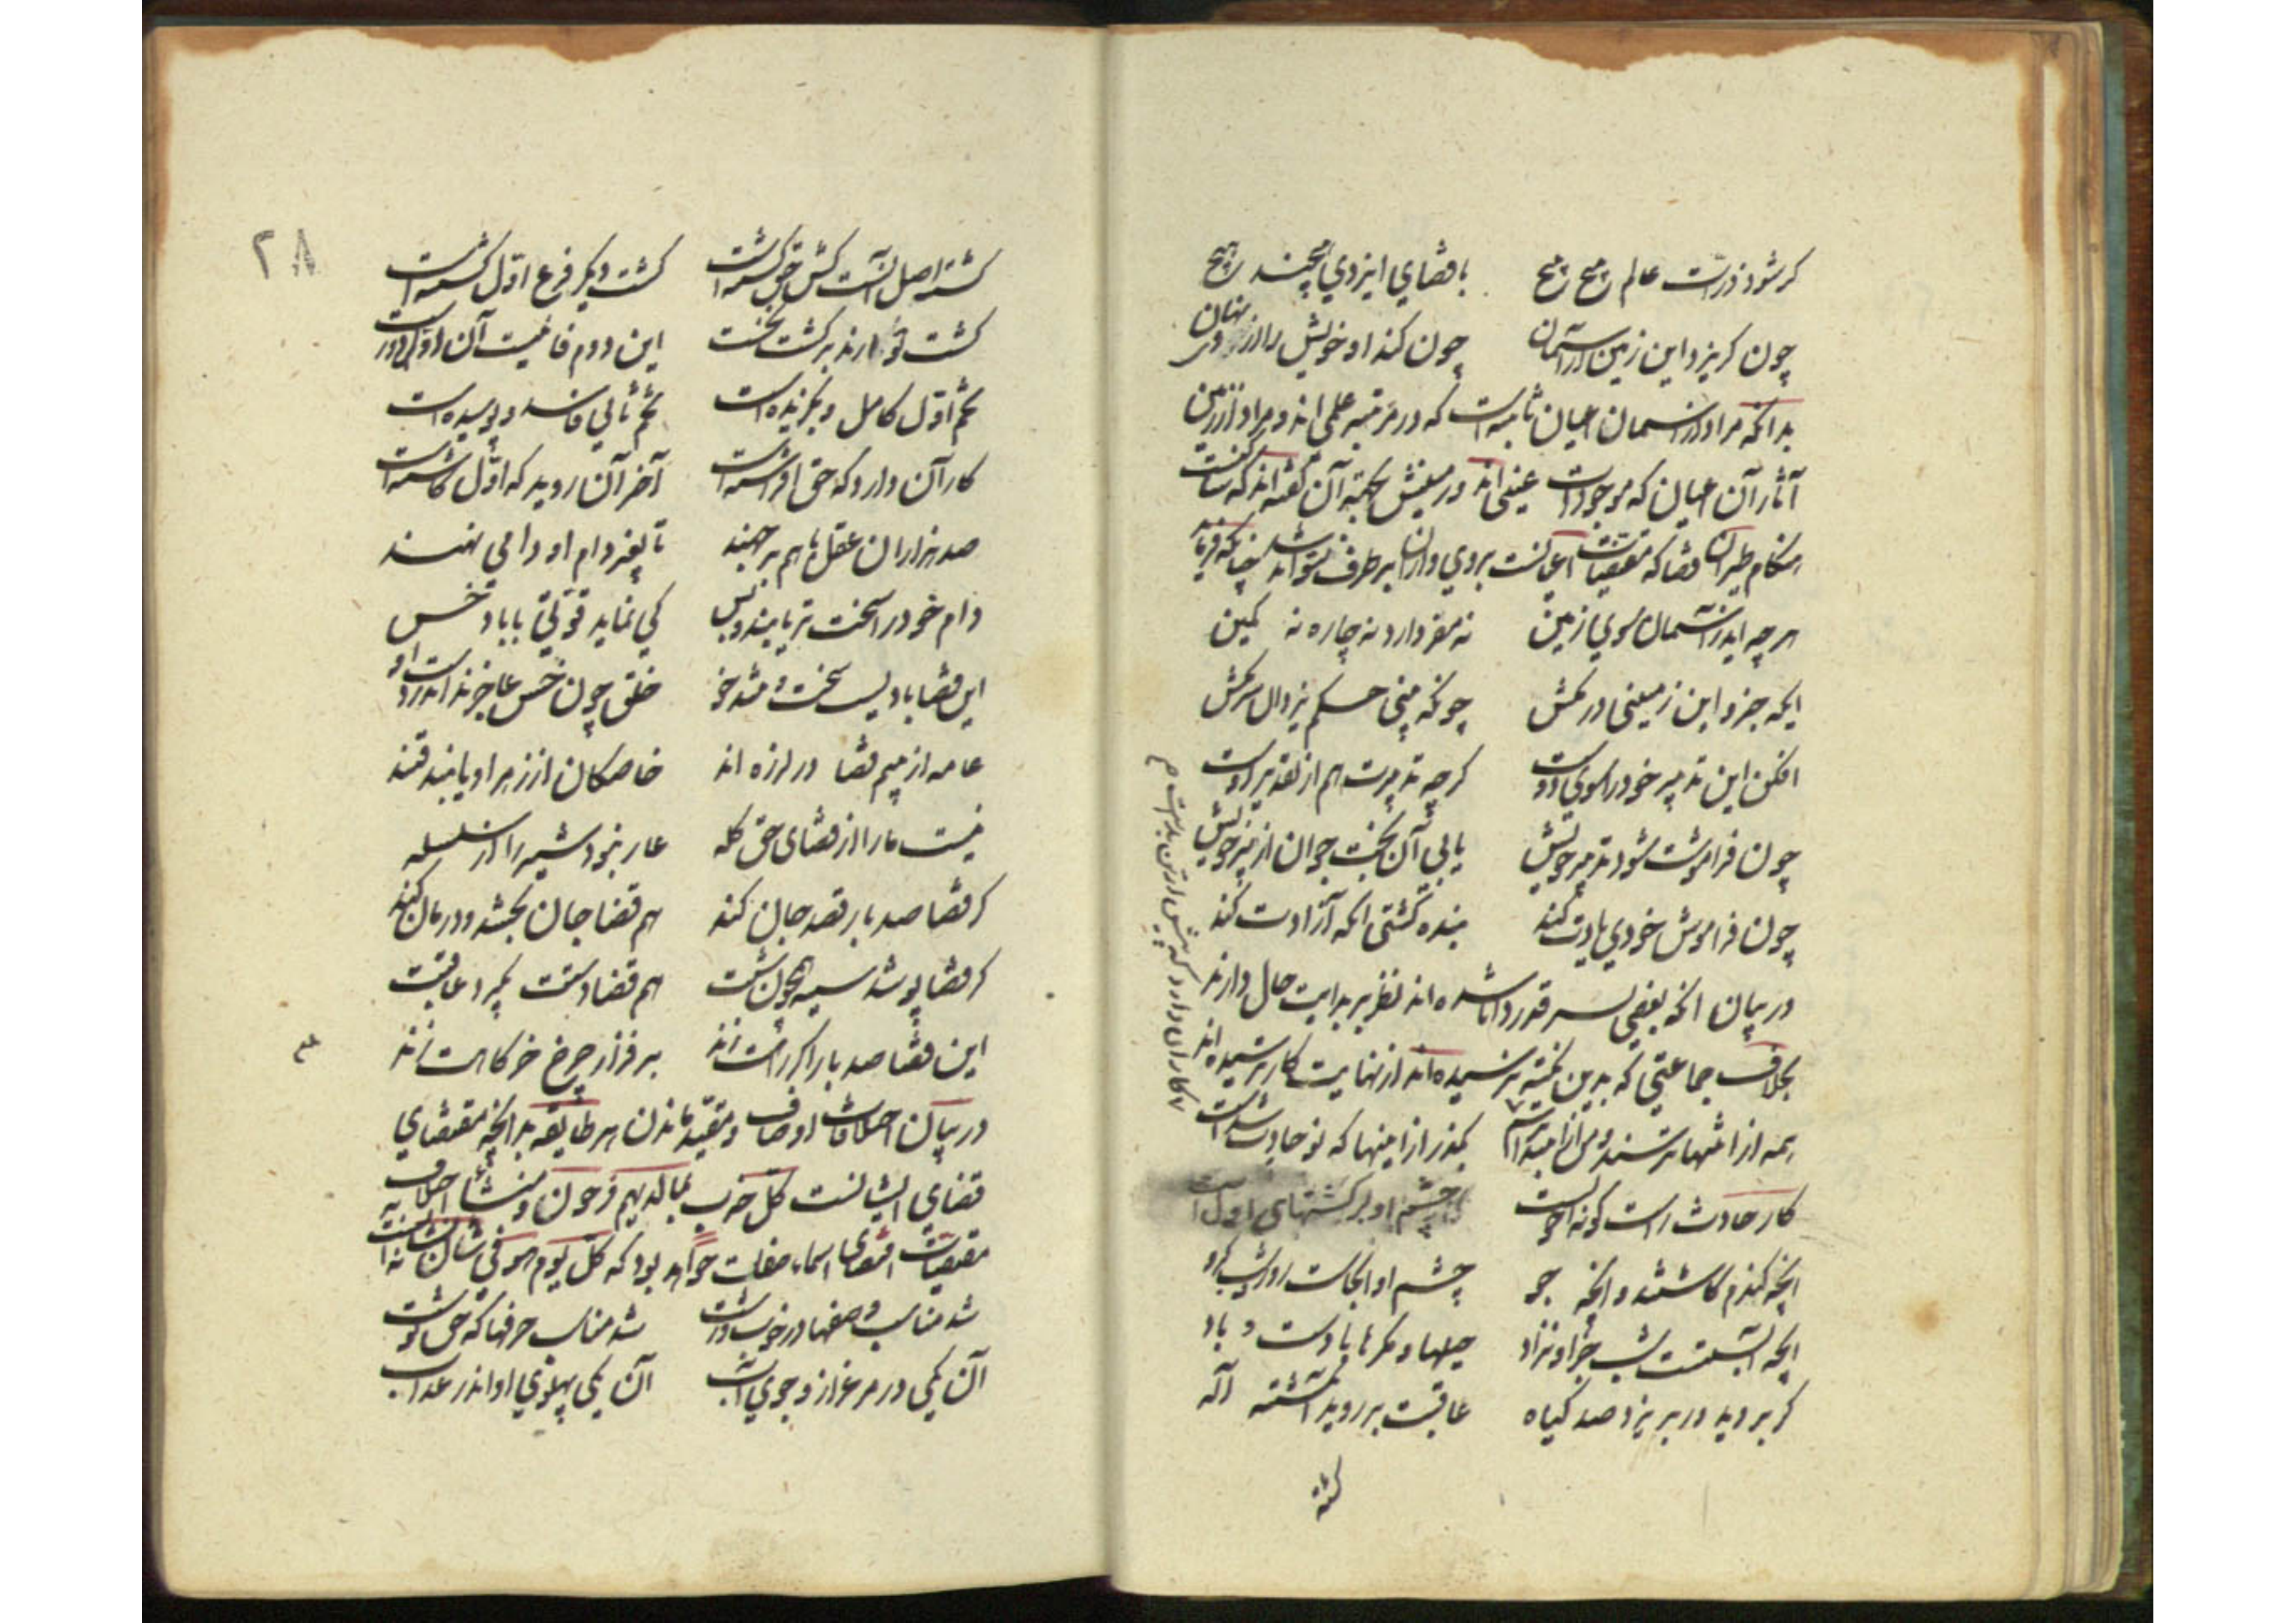 کر شود ذرات عالم پیچ پیچ با قضای ایزدی هیچند هیچ
چون کریزد این زمین از آسمان چون کند او خویش را از وی نهان
بدانکه مراد از آسمان اعیان ثابته است که در مرتبه علمی اند و مراد از زمین
آثار آن اعیان که موجودات عینی اند در
هنکام طیران قضا که مقتضیات اعیانست بروی برطرف چنانکه فرماید
هر چه اید ز آسمان سوی زمین نه مفر دارد نه چاره نه کمین
ایکه جزو این زمینی در مکش چونکه بینی حکم یزدان سر مکش
افکن این تدبیر خود را سوی دوست کر چه تدبیرت هم از تقدیر اوست
کار آن دارد که پیش از تن بدست
چون فراموشت شود تدبیر خویش یابی آن بخت جوان از پیر خویش
چون فراموش خودی یادت کنند بنده کشتی انکه آزادت کنند
در بیان انکه بعضی بسر قدر دانا شده اند نظر بر بدایت حال دارند
بخلاف جماعتی که بدین نکته نرسیده اند از نهایت کار ترسیده اند
همه از انتها ترسند و من از ابتدا ترسم بکذر از اینها که نو حادث شدست
کار حادث راست کو نه احولست چشم او بر کشتهای اولست
انچه کندم کاشتند و انچه جو چشم او انجاست روز و شب کرو
انچه آبستست شب جز او نزاد حیلها و مکرها بادست و باد
کر بروید ور بریزد صد کیاه عاقبت بر روید آن کشته اله
کشته
۲۸
کشته اصل آنست کش حق کشته است کشت دیکر فرع اول کشته است
کشت نو ارند بر کشت نخست این دوم فانیست آن اول درست
تخم اول کامل و بکزیده است تخم ثانی فاسد و پوسیده است
کار آن دارد که حق افراشته است آخر آن روید که اول کاشته است
صد هزاران عقل با هم بر جهند تا بغیر دام او دامی نهند
دام خود را سخت تر یابند و بس کی نماید قوتی با باد خس
این قضا بادیست سخت و تند خو خلق چون خس عاجزند اندر دست او
عامه از بیم قضا در لرزه اند خاصکان از زهر او یابند قند
نیست ما را از قضای حق کله عار نبود شیر را از سلسله
کر قضا صد بار قصد جان کند هم قضا جان بخشد و درمان کند
کر قضا پوشد سیه همچون شبت هم قضا دستت بکیرد عاقبت
این قضا صد بار اکر راهت زند بر فراز چرخ خرکاهت زند
در بیان اختلافات اوصاف و مقید ماندن هر طایفه بدانچه مقتضای
قضای ایشانست کل حزب بما لدیهم فرحون و منشأ اختلاف
مقتضیات اسماء صفات خواهد بود که کل یوم هو فی شأن
شد مناسب وصفها در خوب و زشت شد مناسب حرفها که حق نوشت
آن یکی در مرغزار و جوی آب آن یکی پهلوی او اندر عذاب